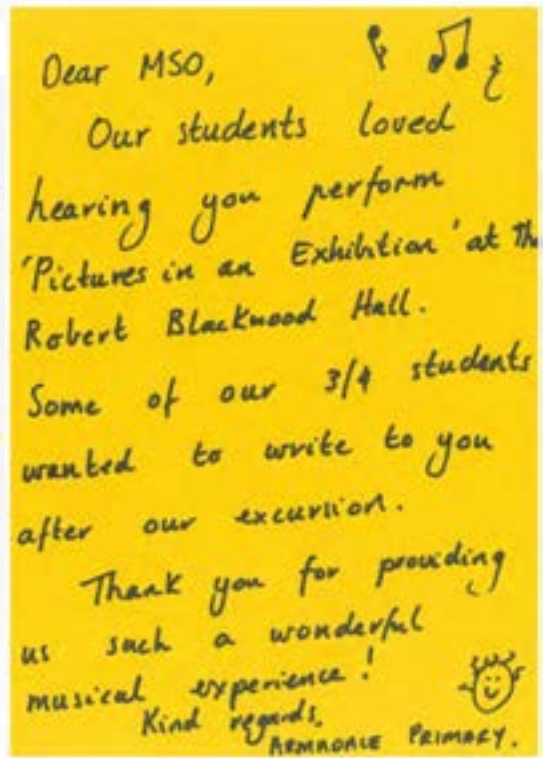 Dear MSO,
Our students loved
hearing you perform
'Pictures in an Exhibition' at the
Robert Blackwood Hall.
Some of our 3/4 students
wanted to write to you
after our excursion.
Thank you for providing
us such a wonderful
musical experience!
Kind regards,
ARMADALE PRIMARY.